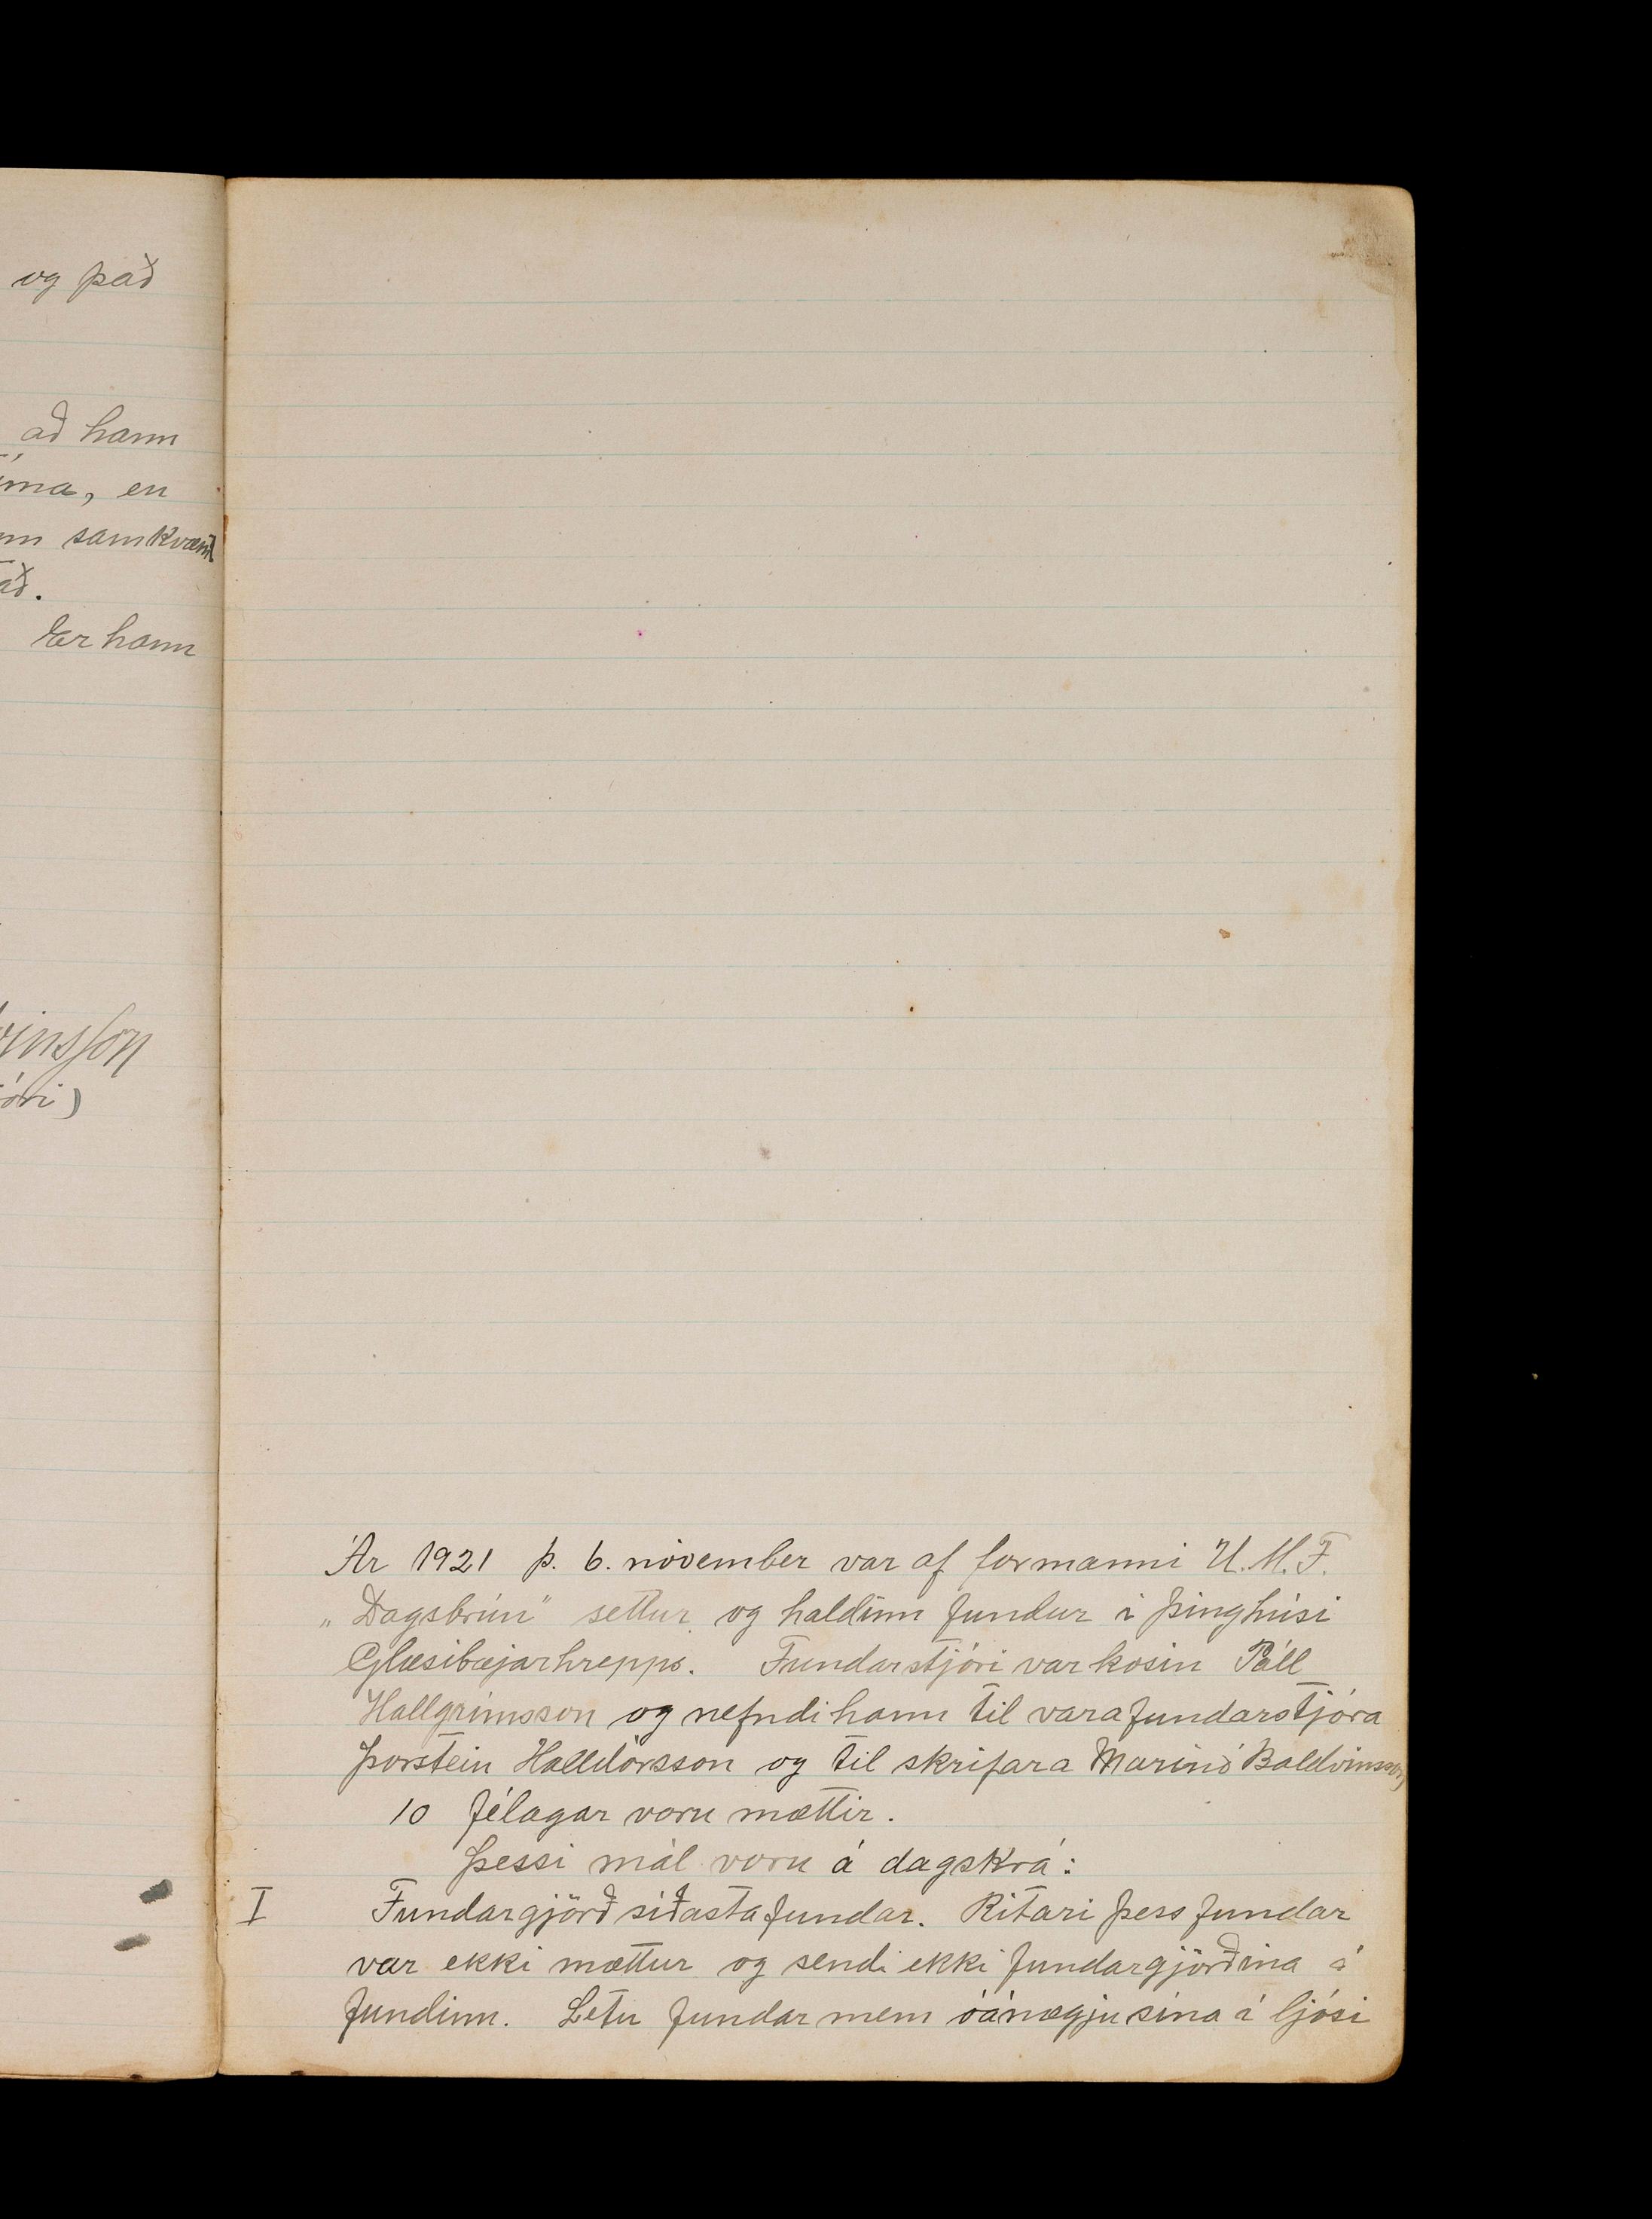 og það
að hann
en
samkvæmt
Er hann
Ár 1921 þ. 6. nóvember var af formanni U.M.F.
„Dagsbrún" settur og haldinn fundur í þinghúsi
Glæsibæjarhrepps. Fundarstjóri var kosin Páll
Hallgrímsson og nefndi hann til varafundarstjóra
Þorstein Halldórsson og til skrifara Marinó Baldvinsson
10 félagar voru mættir.
Þessi mál voru á dagskrá:
I Fundargjörð síðasta fundar. Ritari þess fundar
var ekki mættur og sendi ekki fundargjörðina á
fundinn. Létu fundarmenn óánægju sína í ljósi